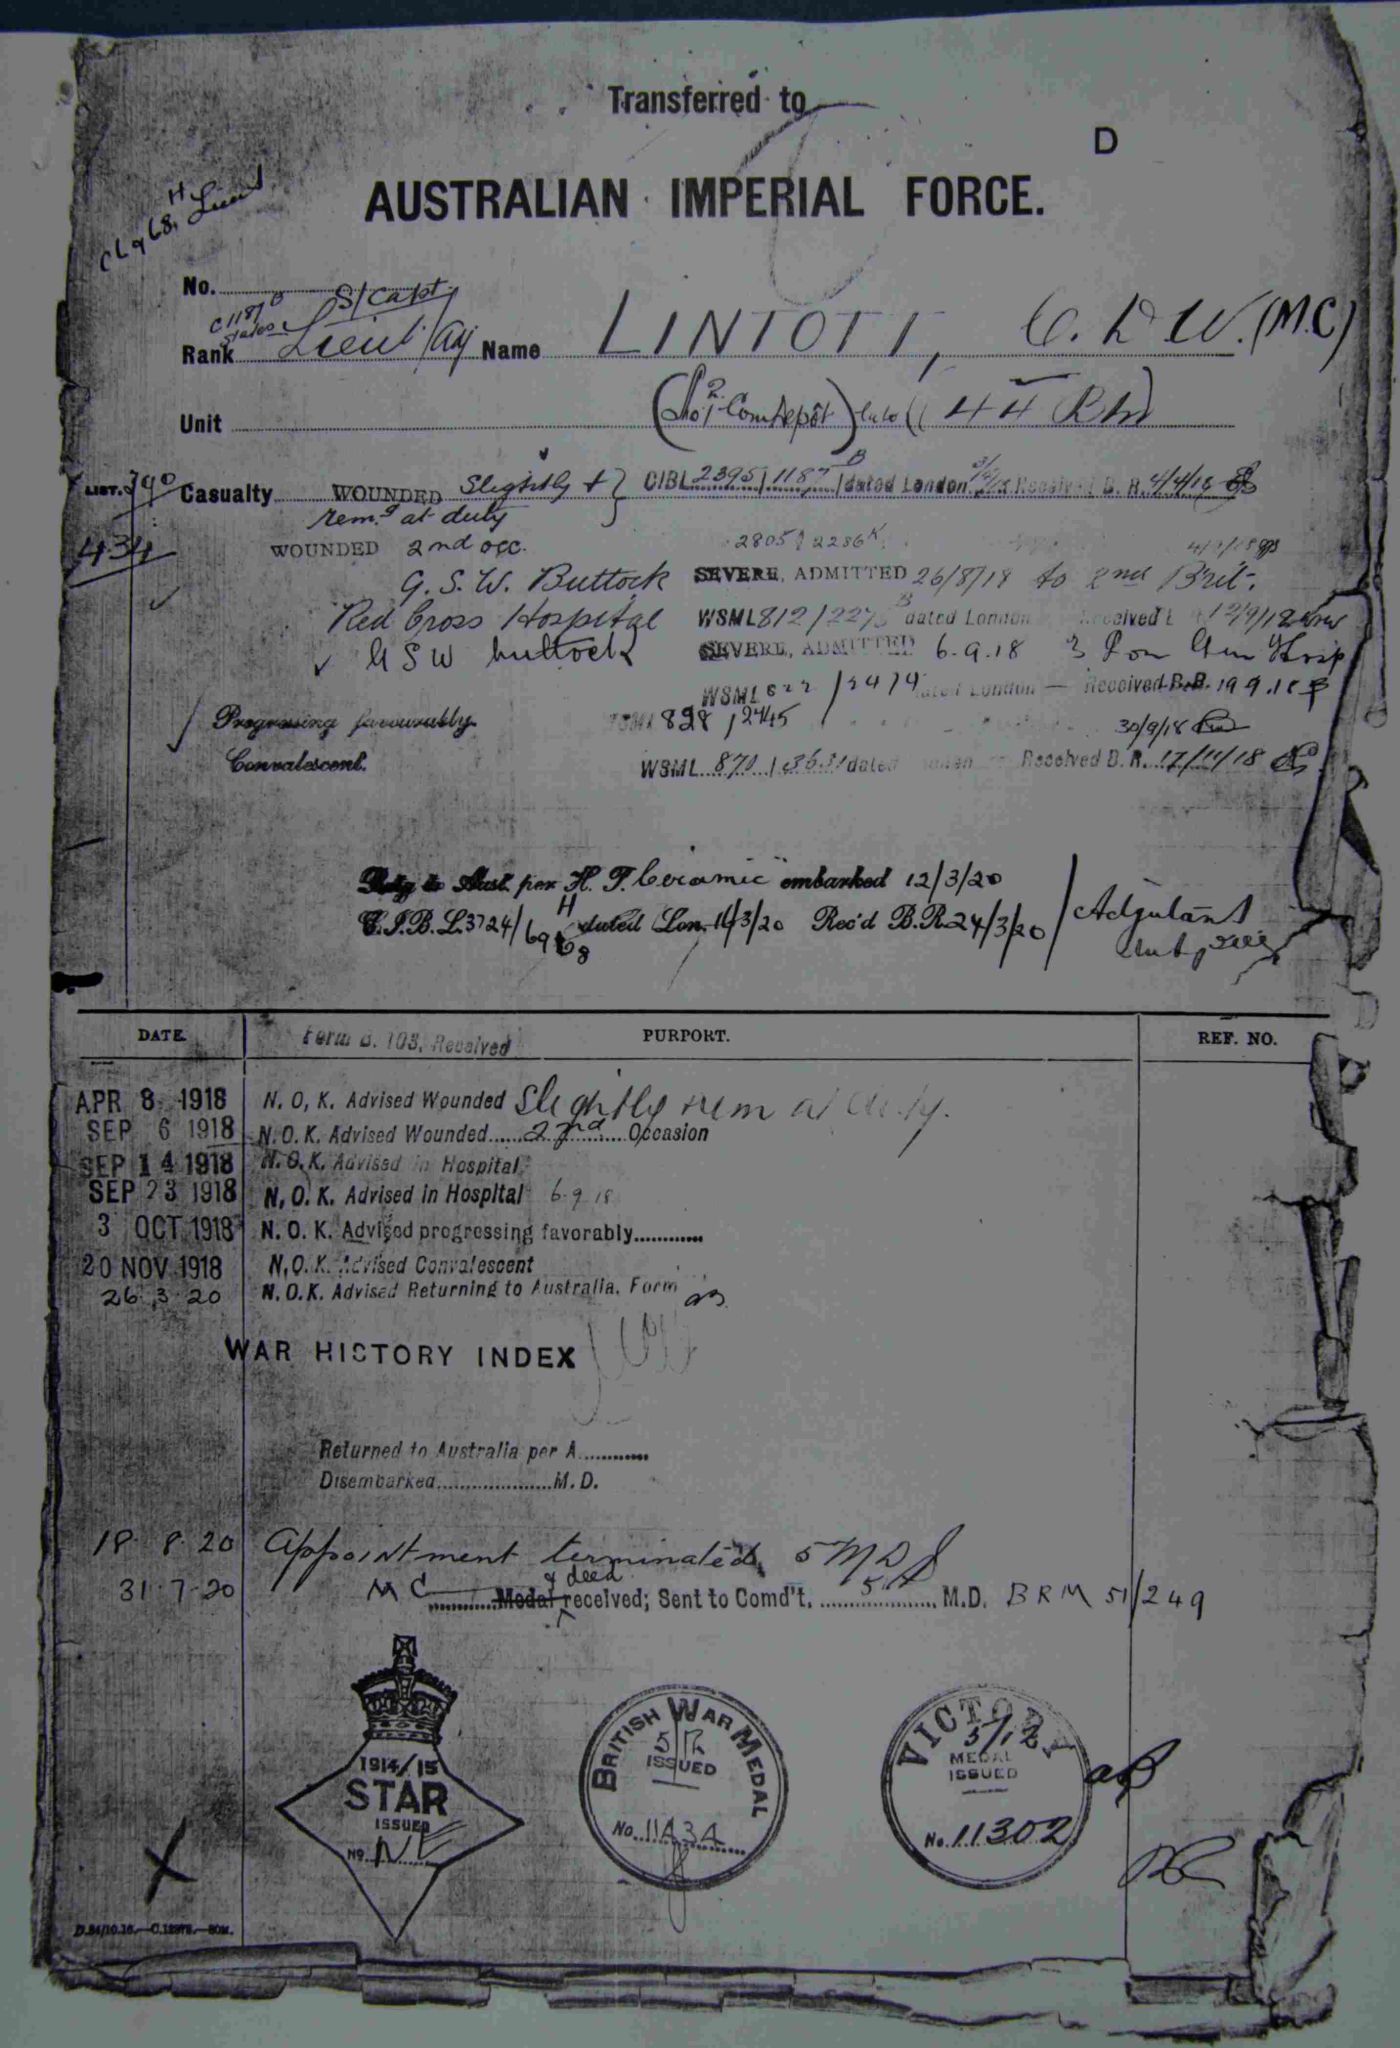 Transferred to
D
AUSTRALIAN IMPERIAL FORCE.
No.
S/Capt.
Rank Lieut/Adj Name LINTOTT, C. D W. (M.C)
Unit (No 2 Com Depôt) late (44 Bn)
LIST. 390 Casualty WOUNDED Slightly & CIBL 2395/1187 B dated London Received B. R. 4/4/18
rem.g at duty
434 WOUNDED 2nd occ. 2805/2286 K
G. S. W. Buttock SEVERE, ADMITTED 26/8/18 to 2nd Brit.
Red Cross Hospital WSML 812/2273 B dated London Received 12/9/18
G S W buttock SEVERE, ADMITTED 6.9.18 3 Lon Gen Hosp
WSML 822/2474 dated London — Received B.R. 19 9.18
Progressing favourably. 828/2745 30/9/18
Convalescent. WSML 870 dated Received B. R. 17/11/18
Retg to Aust. per H. T. "Ceramic" embarked 12/3/20
C.I.B.L. 3724/6968 H dated Lon. 16/3/20 Rec'd B.R. 24/3/20 Adjutant
DATE. Form B. 103. Received PURPORT. REF. NO.
APR 8 1918 N. O. K. Advised Wounded Slightly rem at duty.
SEP 6 1918 N. O. K. Advised Wounded 2nd Occasion
SEP 14 1918 N. O. K. Advised in Hospital
SEP 23 1918 N. O. K. Advised in Hospital 6.9.18
3 OCT 1918 N. O. K. Advised progressing favorably
20 NOV 1918 N. O. K. Advised Convalescent
26.3.20 N. O. K. Advised Returning to Australia. Form
WAR HISTORY INDEX
Returned to Australia per A
Disembarked M. D.
18. 8. 20 Appointment terminated, 5 M D
31.7.20 M C Medal & deed received; Sent to Comd't. 5 M.D. BRM 51/249
1914/15
STAR
ISSUED
No.
BRITISH WAR MEDAL
ISSUED
No. 11434
VICTORY
MEDAL
ISSUED
No. 11302